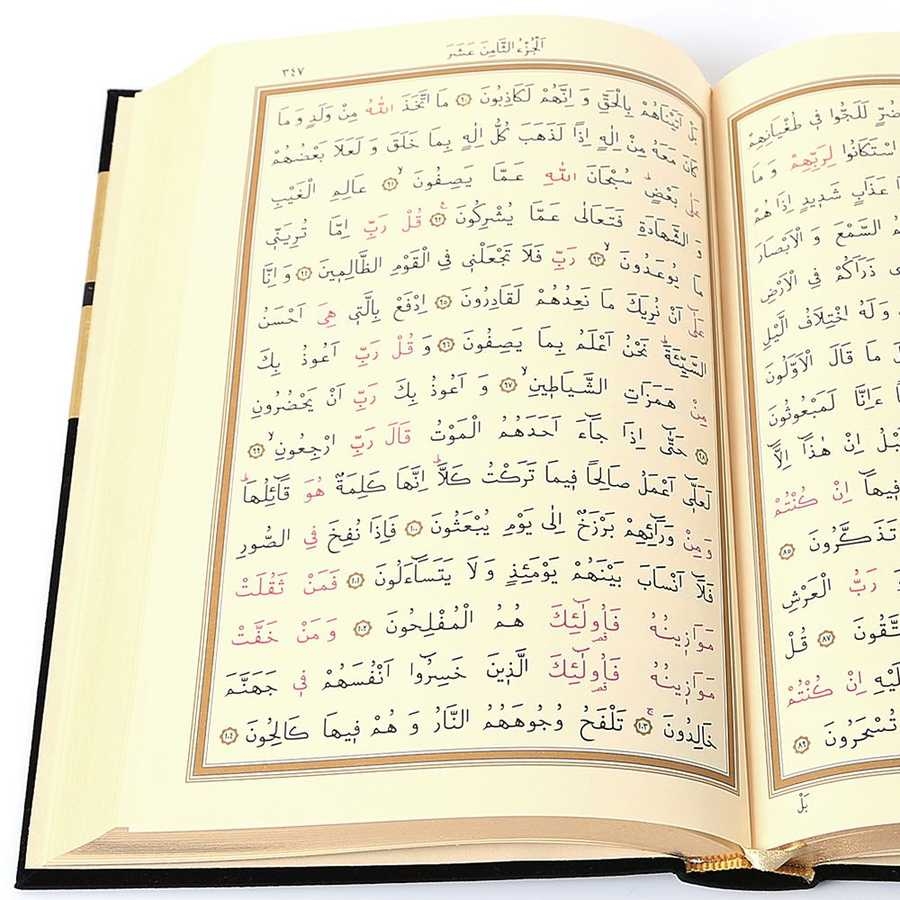 ضُرٍّ لَلَجُّوا فٖي طُغْيَانِهِمْ
اسْتَكَانُوا لِرَبِّهِمْ وَمَا
عَذَابٍ شَدٖيدٍ اِذَا هُمْ
السَّمْعَ وَ الْاَبْصَارَ
ذَرَاَكُمْ فِي الْاَرْضِ
وَلَهُ اخْتِلَافُ الَّيْلِ
مَا قَالَ الْاَوَّلُونَ
ءَاِنَّا لَمَبْعُوثُونَ
اِنْ هٰذَٓا اِلَّٓا
فٖيهَٓا اِنْ كُنْتُمْ
تَذَكَّرُونَ ٨٥
رَبُّ الْعَرْشِ
٨٧ قُلْ
اِنْ كُنْتُمْ
تُسْحَرُونَ ٨٩
بَلْ
اَلْجُزْءُ الثَّامِنَ عَشَرَ
٣٤٧
بَلْ اَتَيْنَاهُمْ بِالْحَقِّ وَ اِنَّهُمْ لَكَاذِبُونَ ٩٠ مَا اتَّخَذَ اللّٰهُ مِنْ وَلَدٍ وَ مَا
كَانَ مَعَهُ مِنْ اِلٰهٍ اِذًا لَذَهَبَ كُلُّ اِلٰهٍ بِمَا خَلَقَ وَ لَعَلَا بَعْضُهُمْ
عَلٰى بَعْضٍ سُبْحَانَ اللّٰهِ عَمَّا يَصِفُونَ ٩١ عَالِمِ الْغَيْبِ
وَ الشَّهَادَةِ فَتَعَالٰى عَمَّا يُشْرِكُونَ ٩٢ قُلْ رَبِّ اِمَّا تُرِيَنّٖي
مَا يُوعَدُونَ ٩٣ رَبِّ فَلَا تَجْعَلْنٖي فِي الْقَوْمِ الظَّالِمٖينَ ٩٤ وَ اِنَّا
عَلٰٓى اَنْ نُرِيَكَ مَا نَعِدُهُمْ لَقَادِرُونَ ٩٥ اِدْفَعْ بِالَّتٖي هِيَ اَحْسَنُ
السَّيِّئَةَ نَحْنُ اَعْلَمُ بِمَا يَصِفُونَ ٩٦ وَ قُلْ رَبِّ اَعُوذُ بِكَ
مِنْ هَمَزَاتِ الشَّيَاطٖينِ ٩٧ وَ اَعُوذُ بِكَ رَبِّ اَنْ يَحْضُرُونِ
٩٨ حَتّٰٓى اِذَا جَٓاءَ اَحَدَهُمُ الْمَوْتُ قَالَ رَبِّ ارْجِعُونِ ٩٩
لَعَلّٖٓي اَعْمَلُ صَالِحًا فٖيمَا تَرَكْتُ كَلَّا اِنَّهَا كَلِمَةٌ هُوَ قَٓائِلُهَا
وَ مِنْ وَرَٓائِهِمْ بَرْزَخٌ اِلٰى يَوْمِ يُبْعَثُونَ ١٠٠ فَاِذَا نُفِخَ فِي الصُّورِ
فَلَٓا اَنْسَابَ بَيْنَهُمْ يَوْمَئِذٍ وَ لَا يَتَسَٓاءَلُونَ ١٠١ فَمَنْ ثَقُلَتْ
مَوَازٖينُهُ فَاُولٰٓئِكَ هُمُ الْمُفْلِحُونَ ١٠٢ وَ مَنْ خَفَّتْ
مَوَازٖينُهُ فَاُولٰٓئِكَ الَّذٖينَ خَسِرُٓوا اَنْفُسَهُمْ فٖي جَهَنَّمَ
خَالِدُونَ ١٠٣ تَلْفَحُ وُجُوهَهُمُ النَّارُ وَ هُمْ فٖيهَا كَالِحُونَ ١٠٤